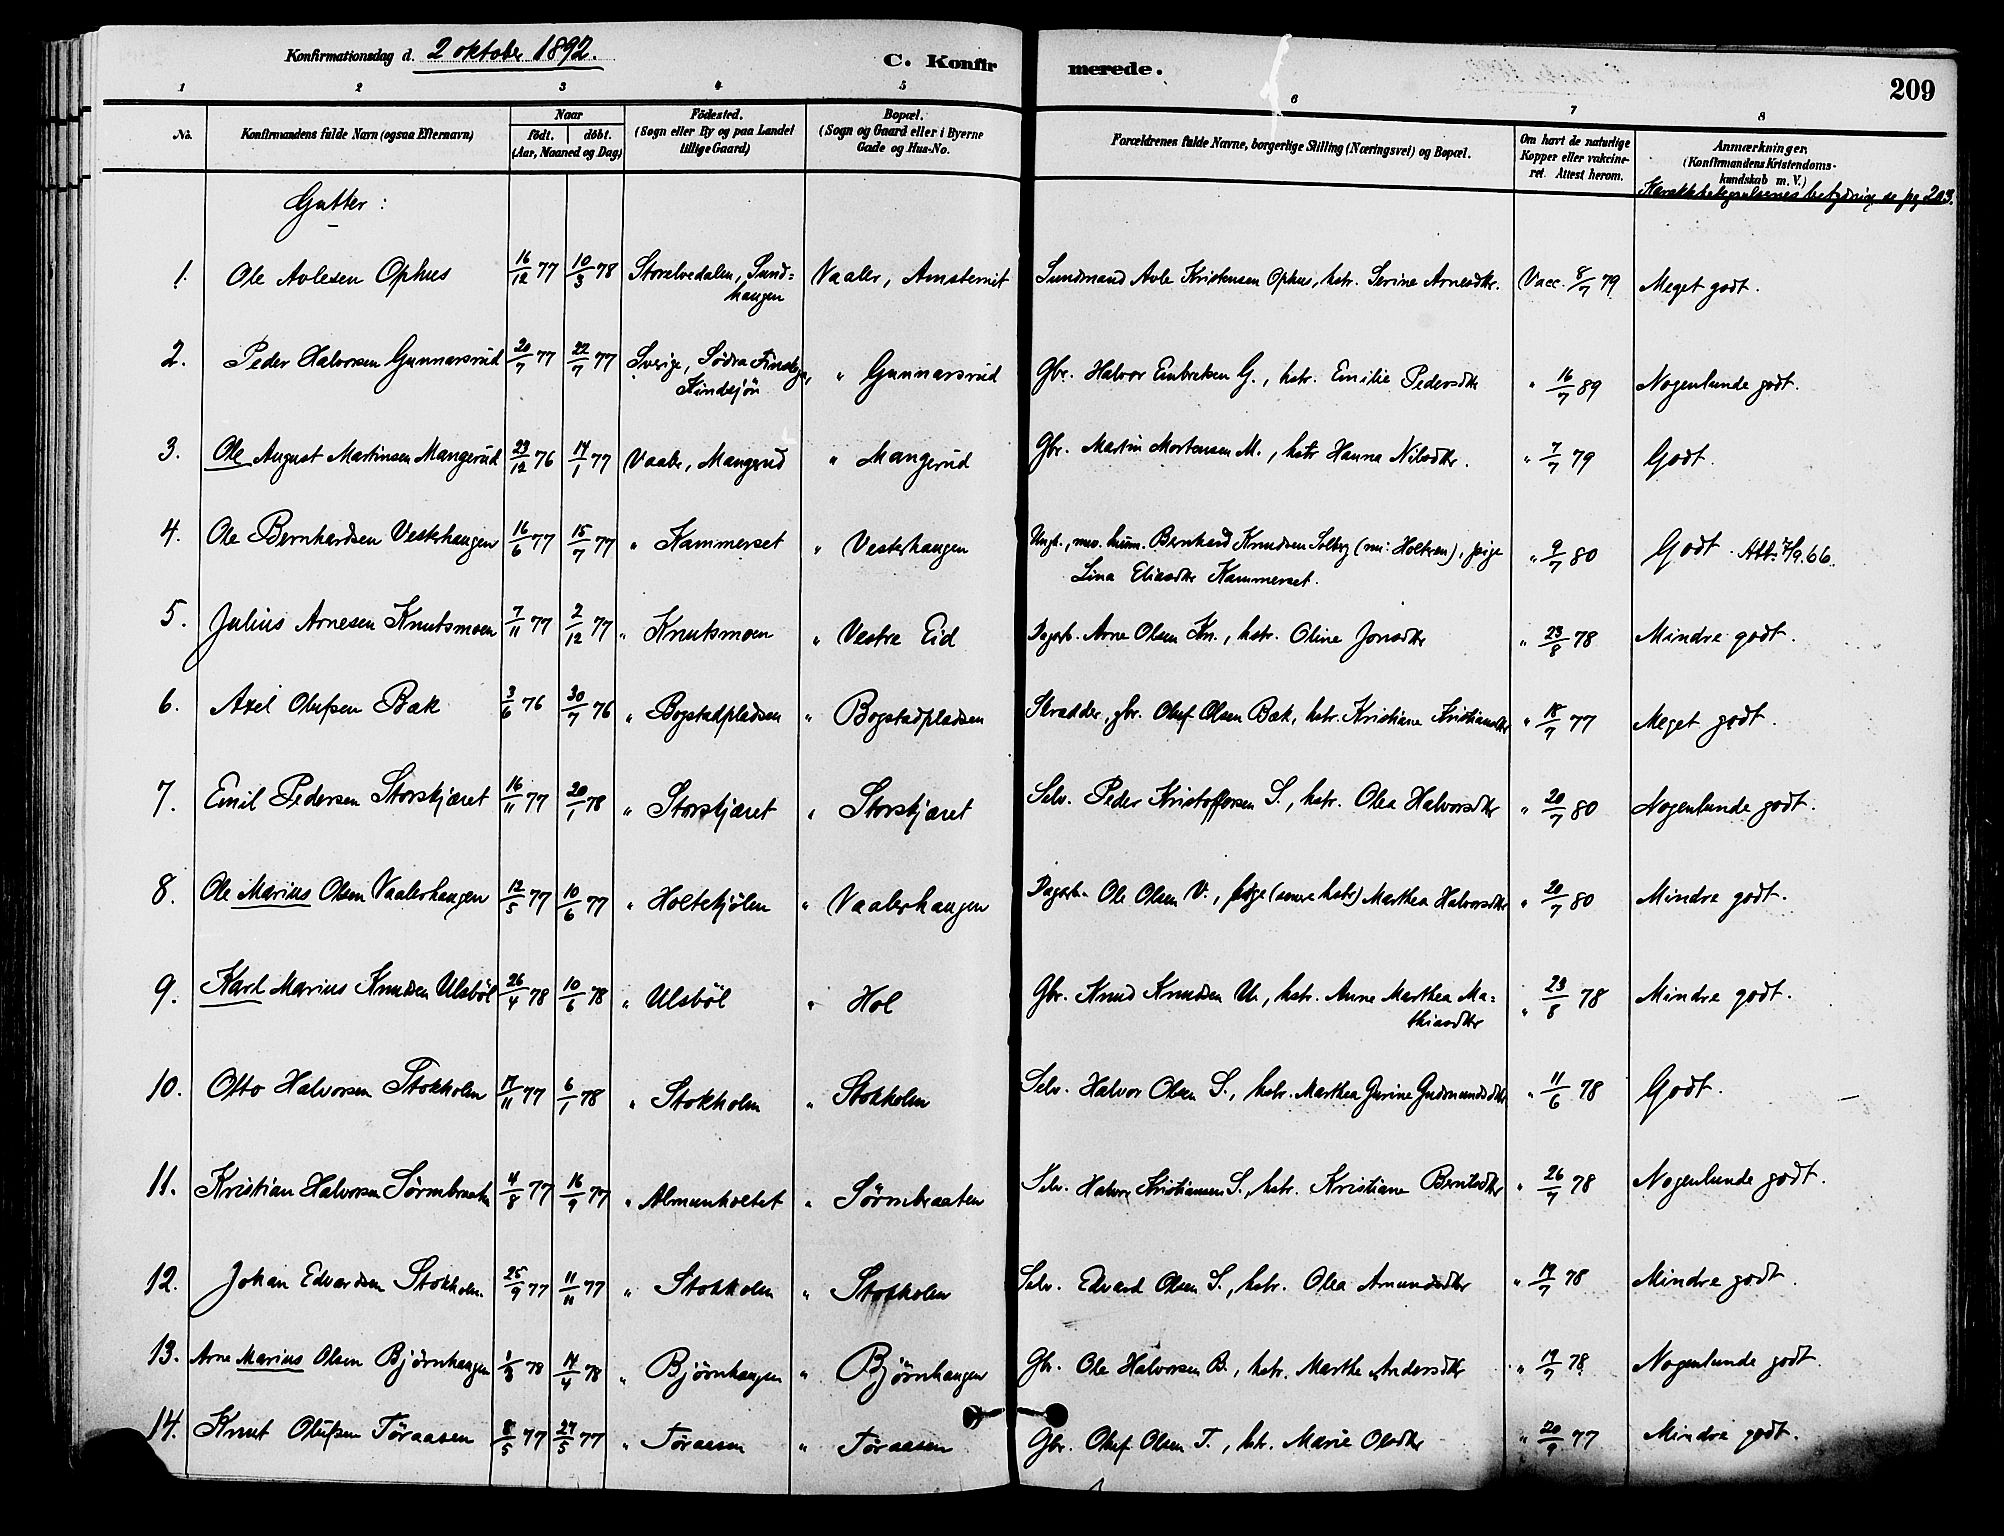 Konfirmationsdag d. 2 oktober 1892.
C. Konfirmerede.
209
1 2 3 4 5 6 7 8
No.
Konfirmandens fulde Navn (ogsaa Efternavn)
Naar
födt. döbt.
(Aar, Maaned og Dag)
Födested.
(Sogn eller By og paa Landet
tillige Gaard)
Bopæl.
(Sogn og Gaard eller i Byerne
Gade og Hus-No.
Forældrenes fulde Navne, borgerlige Stilling (Næringsvei) og Bopæl.
Om havt de naturlige
Kopper eller vakcine-
ret. Attest herom.
Anmærkninger.
(Konfirmandens Kristendoms-
kundskab m. V.)
betydning se pg 203.
Gutter:
1. Ole Avlesen Ophus 16/12 77 10/3 78 Storelvedalen, Sund= Vaaler, Amsternit Sundmand Avle Kristensen Ophus, hstr. Serine Arnesdtr. Vacc. 8/7 79 Meget godt.
haugen
2. Peder Halvorsen Gunnarsrud 20/7 77 22/7 77 Sverige, Södra Finskga, " Gunnarsrud Gbr. Halvor Embretsen G., hstr. Emilie Pedersdtr " 16/7 89 Nogenlunde godt.
3. Ole August Martinsen Mangerud 23/12 76 14/1 77 Vaaler, Mangrud " Mangerud Gbr. Martin Mortensen M., hstr Hanna Nilsdtr. " 7/7 79 Godt.
4. Ole Bernhardsen Vesterhaugen 16/6 77 15/7 77 " Kammerset " Vesterhaugen Ungk., Bernhard Knudsen Solberg (nu: Holteren), pige " 9/7 80 Godt. Att: 7/9.66.
Lina Eliasdtr Kammerset.
5. Julius Arnesen Knutsmoen 7/11 77 2/12 77 " Knutsmoen " Vestre Eid Dagarb. Arne Olsen Kn., hstr. Oline Jonsdtr " 23/8 78 Mindre godt.
6. Axel Olufsen Bak 3/6 76 30/7 76 " Bogstadpladsen " Bogstadpladsen Skrædder, gbr. Oluf Olsen Bæk, hstr. Kristiane Kristiansdtr " 18/7 77 Meget godt.
7. Emil Pedersen Storskjæret 16/11 77 20/1 78 " Storskjæret " Storskjæret Selv. Peder Kristoffersen S., hstr. Olea Halvorsdtr " 20/7 80 Nogenlunde godt.
8. Ole Marius Olsen Vaalerhaugen 12/5 77 10/6 77 " Holtekjølen " Vaalerhaugen Dagarb. Ole Olsen V., pige (senere hstr) Marthea Halvorsdtr " 20/7 80 Mindre godt.
9. Karl Marius Knudsen Ulsböl 26/4 78 10/6 78 " Ulsböl " Hol Gbr. Knud Knudsen U., hstr. Anne Marthea Ma= " 23/8 78 Mindre godt.
thiasdtr
10. Otto Halvorsen Stokholm 17/11 77 6/1 78 " Stokholm " Stokholm Selv. Halvor Olsen S., hstr. Marthea Gurine Gudmundsdtr " 11/6 78 Godt.
11. Kristian Halvorsen Sörmbraaten 4/8 77 16/9 77 " Almenholtet " Sörmbraaten Selv. Halvor Kristiansen S., hstr. Kristiane Berntsdtr " 26/7 78 Nogenlunde godt.
12. Johan Edvardsen Stokholm. 25/9 77 11/11 77 " Stokholm " Stokholm Selv. Edvard Olsen S., hstr. Olea Amundsdtr " 19/7 78 Mindre godt.
13. Arne Marius Olsen Björnhaugen 1/3 78 14/4 78 " Björnhaugen " Björnhaugen Gbr. Ole Halvorsen B., hstr. Marthe Andersdtr " 19/7 78 Nogenlunde godt.
14. Knut Olufsen Töraasen 8/5 77 27/5 77 " Töraasen " Töraasen Gbr. Oluf Olsen T., hstr. Marie Olsdtr " 20/9 77 Mindre godt.